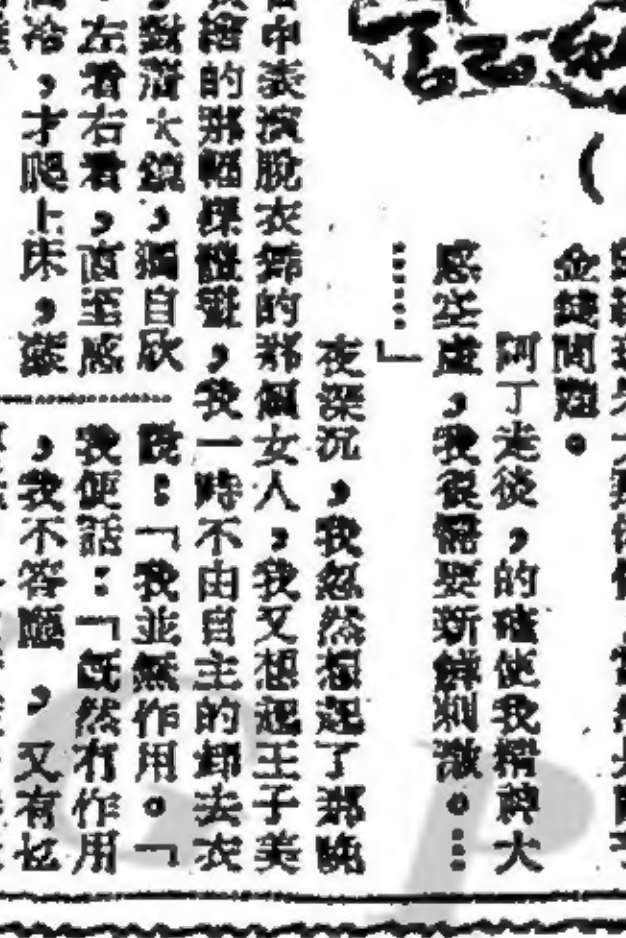 金錢問題。
阿丁走後,的確使我精神大
感空虛,我很需要新鮮刺激。…
……」
夜深沉,我忽然想起了那晚
中表演脫衣舞的那個女人,我又想起王子美
繪的那幅裸體畫,我一時不由自主的卸去衣
對着大鏡,獨自欣
左看右看,直至感
冷,才爬上床,
說:「我並無作用。「
我便話:「既然有作用
,我不答應,又有乜